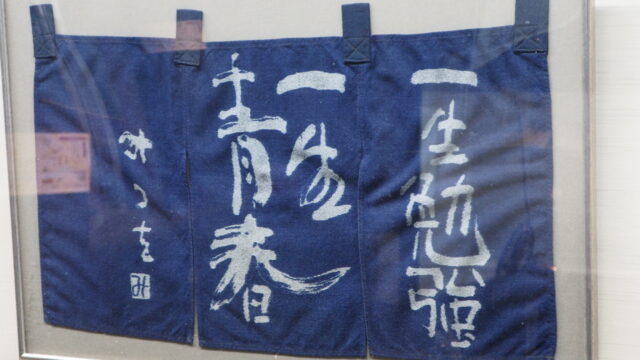 一生勉強
一生
青春
みつを
み